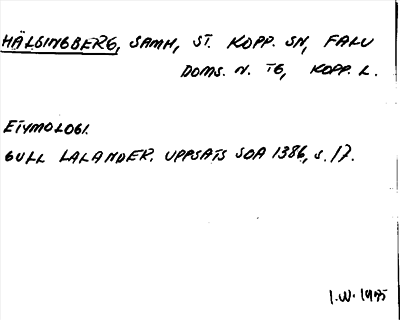 HÄLSINGBERG, SAMH, ST. KOPP. SN, FALU
DOMS. N. TG, KOPP. L.
ETYMOLOGI.
GULL LALANDER. UPPSATS SOA 1386, s. 17.
I.W. 1975